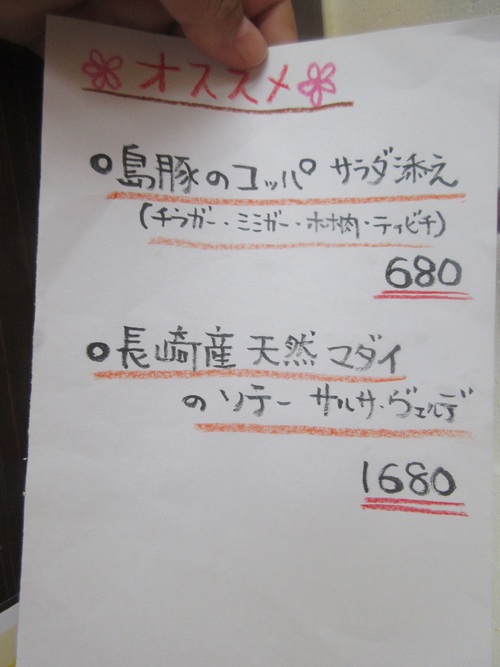 オススメ
島豚のコッパ サラダ添え
(チラガー・ミミガー・ホホ肉・テビチ)
680
長崎産 天然 マダイ
のソテー サルサ・ヴェルデ
1680